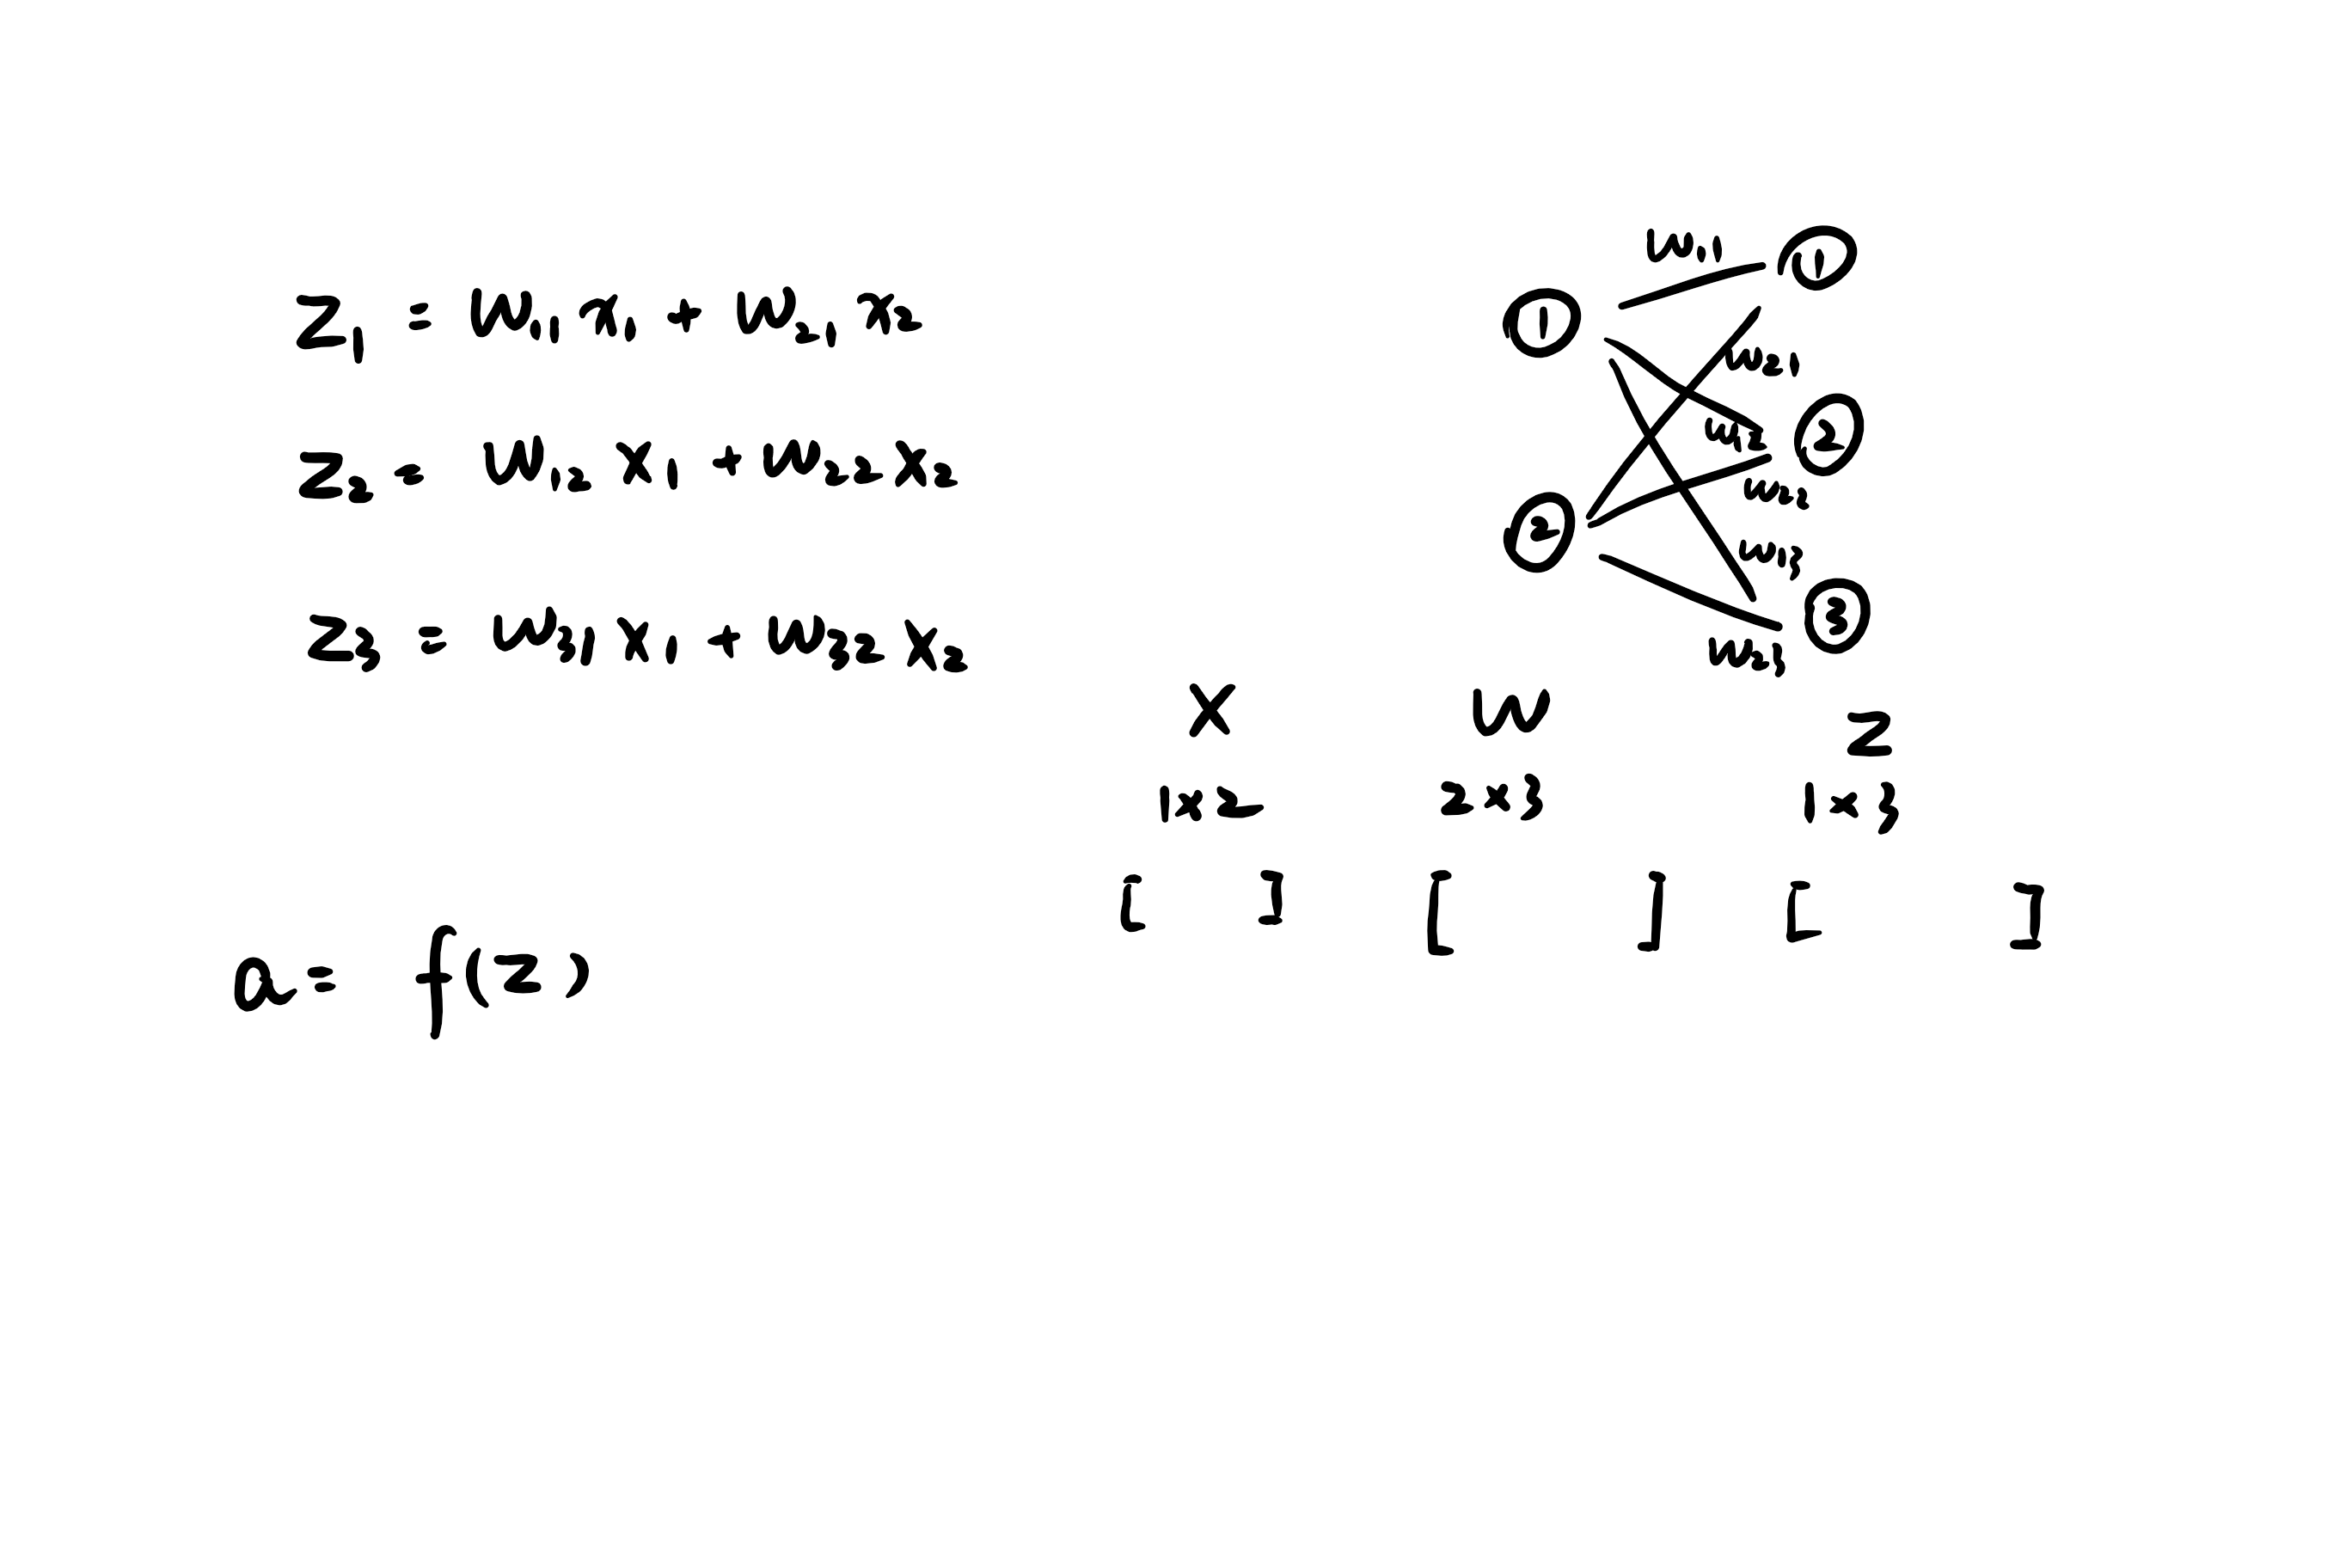 z₁ = w₁₁x₁ + w₂₁x₂
z₂ = w₁₂x₁ + w₂₂x₂
z₃ = w₃₁x₁ + w₃₂x₂
a = f(z)
w₁₁
1
1
w₂₁
2
w₁₂
w₂₂
2
w₁₃
3
w₂₃
X W Z
1×2 2×3 1×3
[ ] [ ] [ ]